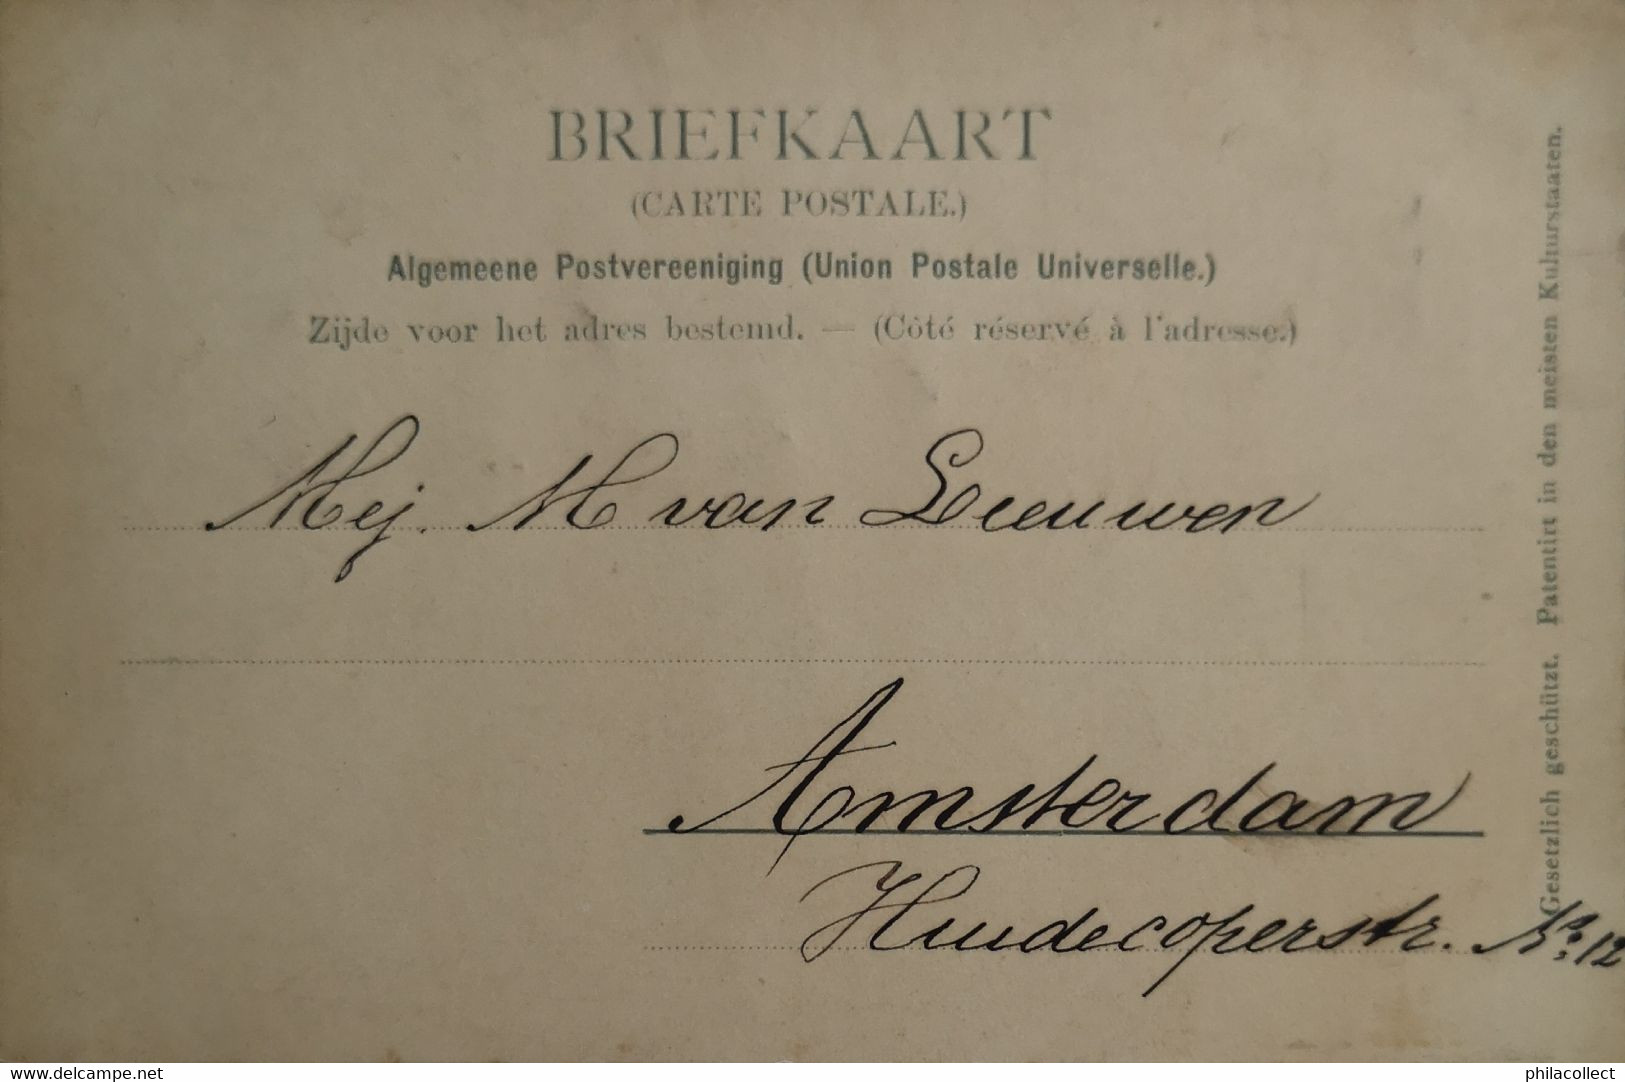 BRIEFKAART
(CARTE POSTALE.)
Algemeene Postvereeniging (Union Postale Universelle.)
Zijde voor het adres bestemd. — (Côté réservé à l'adresse.)
Mej. M van Leeuwen
Amsterdam
Huidecoperstr. No. 12
Gesetzlich geschützt. Patentirt in den meisten Kulturstaaten.
delcampe.net
philacollect